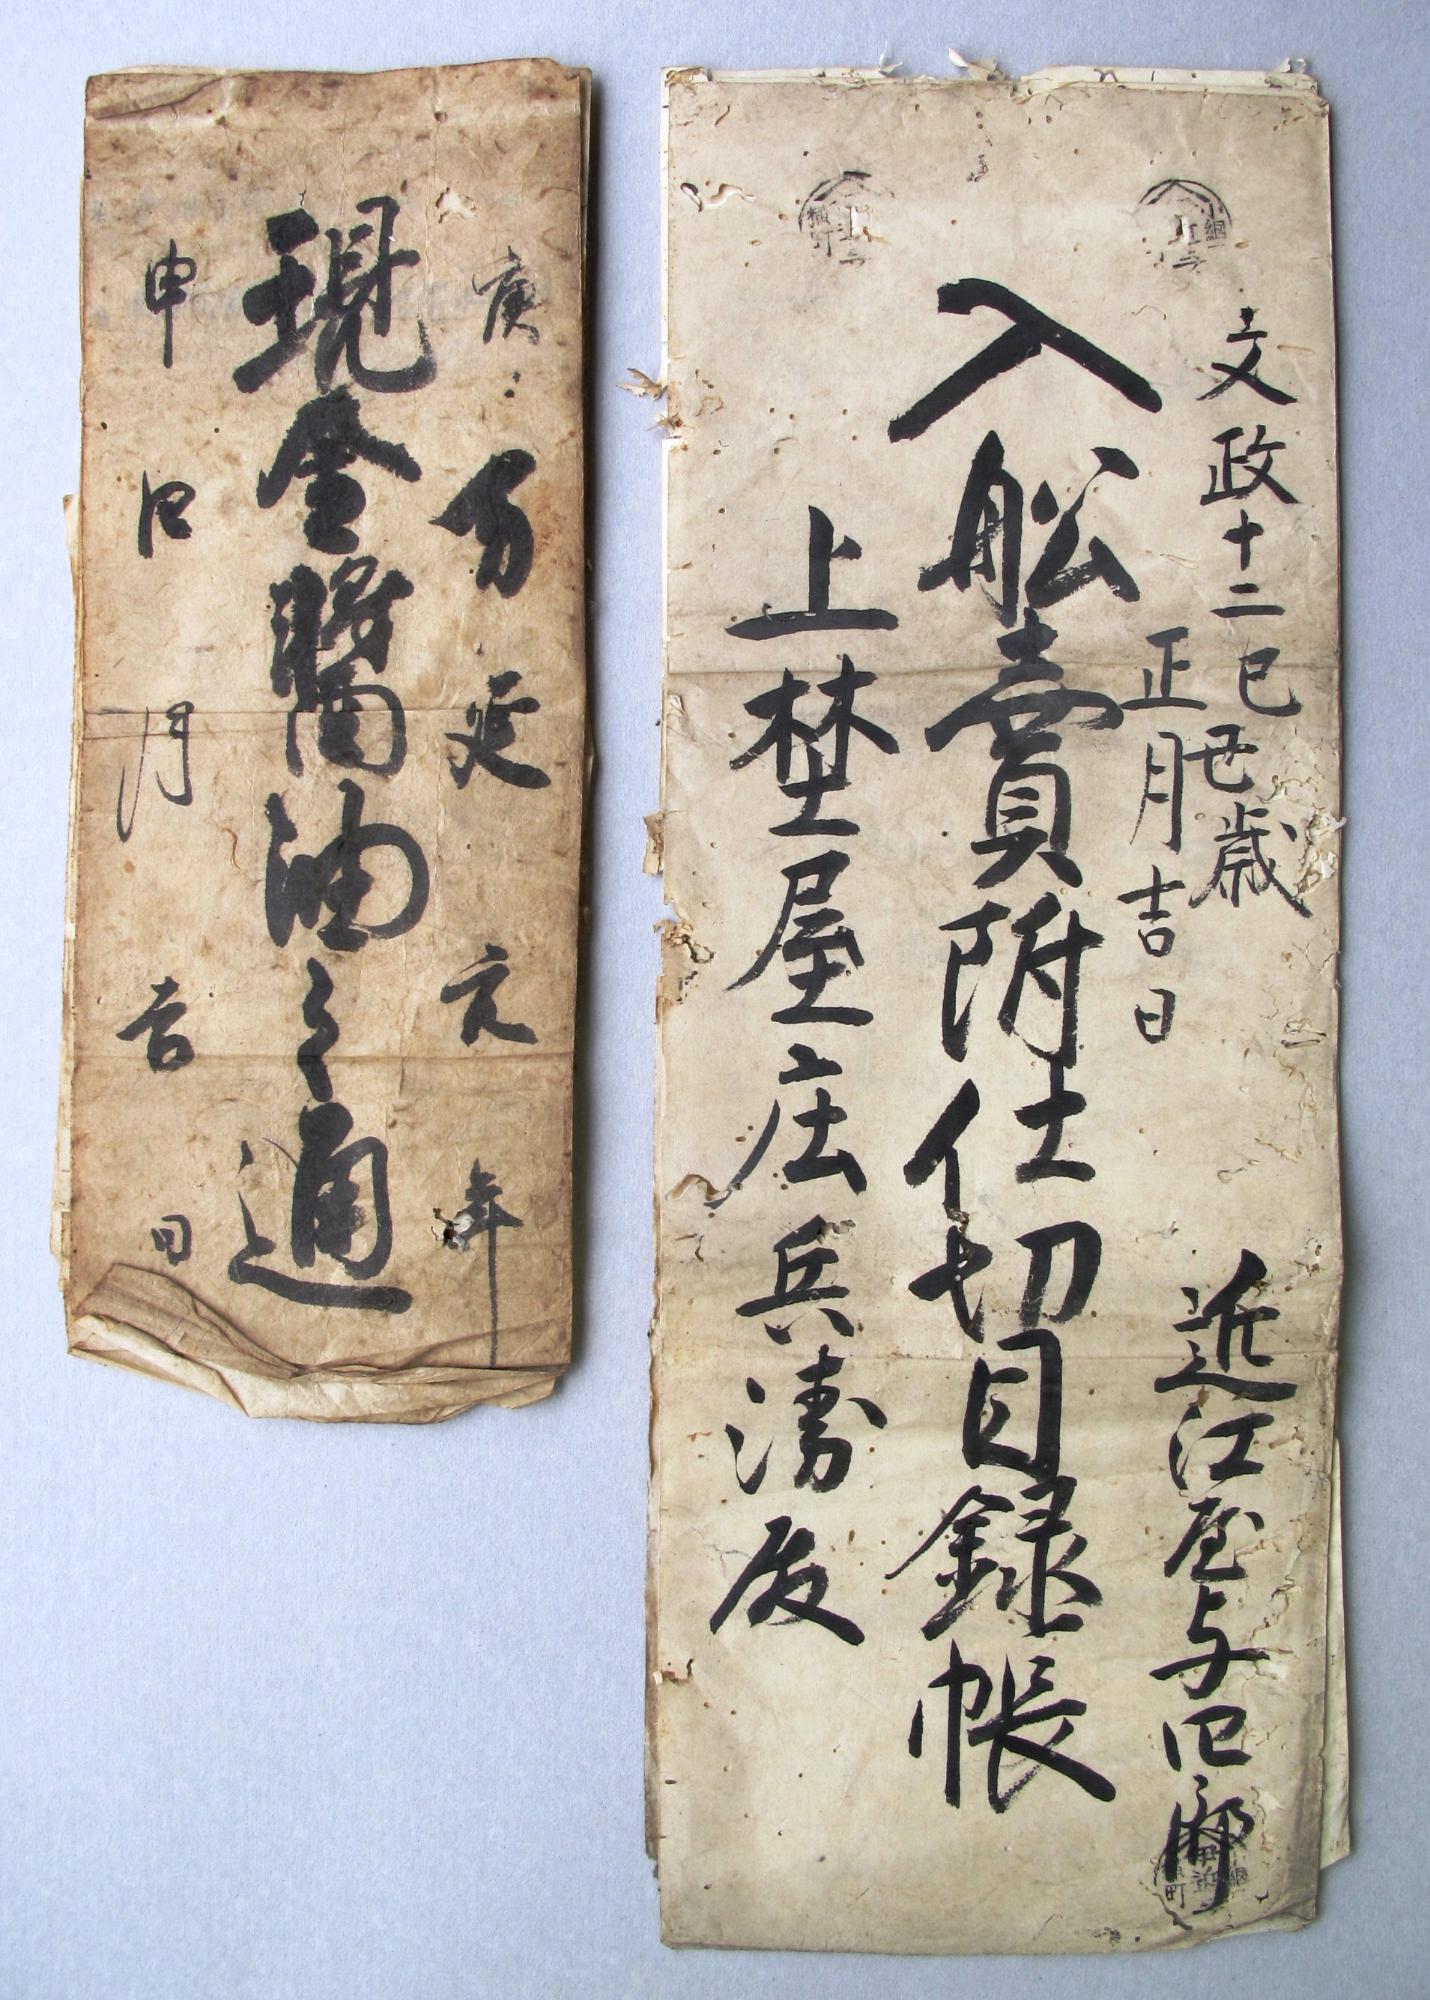 文政十二己丑歳
正月吉日
近江屋与四郎
入舩賣附仕切目録帳
上埜屋庄兵衛殿
庚
万延元年
現金醤油之通
申
月吉日